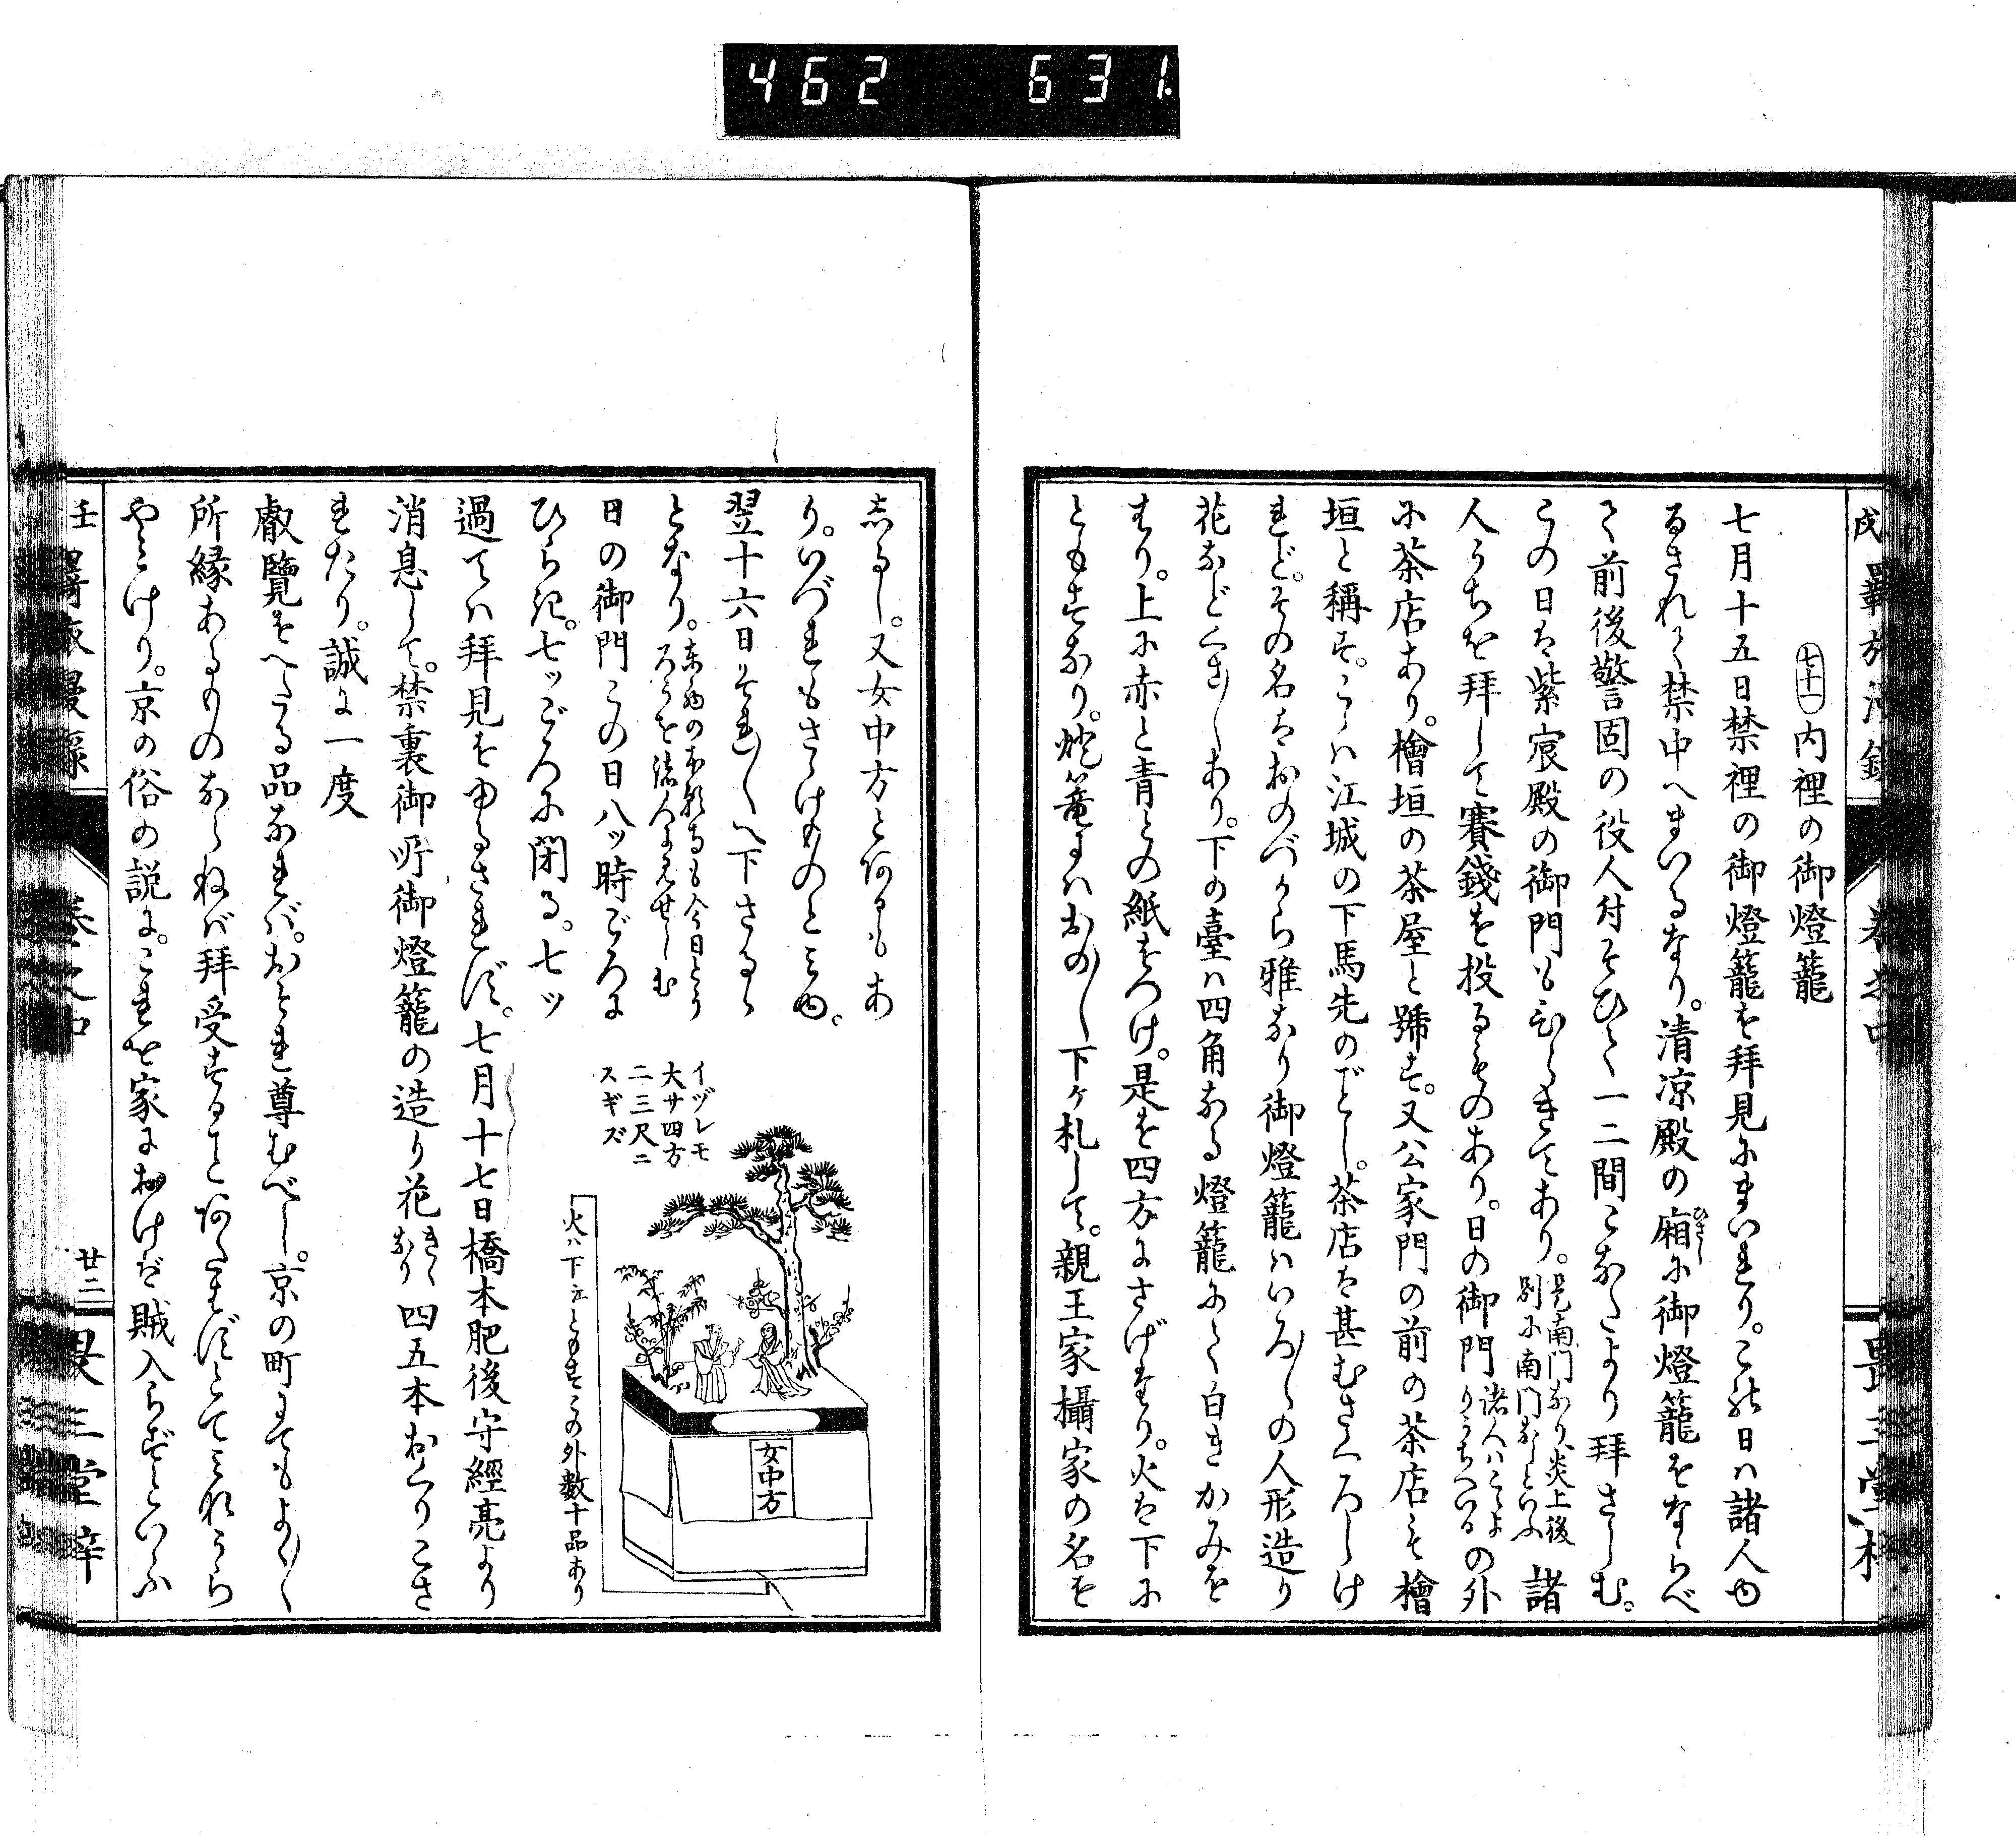 462 631
七十一 内裡の御燈籠
七月十五日禁裡の御燈籠を拝見にまいれり。この日ハ諸人ゆ
るされて禁中へまいるなり。清凉殿の廂に御燈籠をならべ
て前後警固の役人付そひて一二間こなたより拜さしむ。
この日は紫宸殿の御門もひらきてあり。是南門なり、炎上後別に南門なしといふ 諸
人うちを拜して賽錢を投るものあり。日の御門諸人ハこゝよりうちへいるの外
に茶店あり。檜垣の茶屋と號す。又公家門の前の茶店も檜
垣と稱す。こゝハ江城の下馬先のごとし。茶店は甚むさくろしけ
れど。その名はおのづから雅なり御燈籠ハいろ〱の人形造り
花などくさ〲あり。下の臺ハ四角なる燈籠にて白きかみを
はり。上に赤と青との紙をつけ。是を四方にさげたり。火は下に
ともすなり。燈篭にハおの〱下ケ札して。親王家攝家の名を
しるし。又女中方とあるもあ
り。いづれもさゝけものとみゆ。
翌十六日それ〱へ下さるゝ
となり。
日の御門この日八ツ時ごろに
ひらき。七ツごろに閉る。七ツ
過てハ拜見をゆるされず。七月十七日橋本肥後守經亮より
消息して。禁裏御所御燈籠の造り花きくなり四五本おくりこさ
れたり。誠に一度
叡覽をへたる品なれバ。おそれ尊むべし。京の町にてもよく〱
所縁あるものならねバ拜受することあたはずとてみなうら
やみけり。京の俗の説に。これを家におけば賊入らずといふ
イヅレモ
大サ四方
二三尺ニ
スギズ
火ハ下ニともすこの外數十品あり
女中方
卷之中
廿二